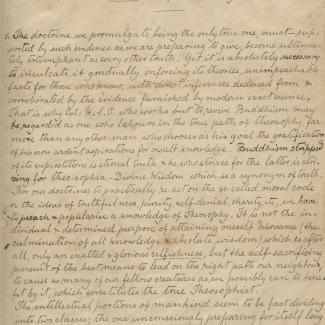 1. The doctrine we promulgate being the only true one, must – sup-
ported by such evidence as we are preparing to give become ultima-
tely triumphant as every other truth. Yet it is absolutely necessary
to inculcate it gradually, enforcing its theories, unimpeachable
facts for those who know, with direct inferences deduced from &
corroborated by the evidence furnished by modern exact science.
That is why Col. H.S.O. who works but to revive Buddhism may
be regarded as one who labours in the true path of theosophy, far
more than any other man who chooses as his goal the gratification
of his own ardent aspirations for occult knowledge. Buddhism stripped
of its superstitions is eternal truth & he who strives for the latter is stri-
ving for Theo-sophia – Divine Wisdom which is a synonym of truth.
For our doctrines to practically re-act on the so-called moral code
or the ideas of truthfulness, purity, self-denial, charity, etc., we have
to preach & popularise a knowledge of Theosophy. It is not the in-
dividual & determined purpose of attaining oneself Nirvana (the
culmination of all knowledge & absolute wisdom) which is after
all, only an exalted & glorious selfishness, but the self-sacrificing
pursuit of the best means to lead on the right path our neighbour,
to cause as many of our fellow creatures as we possibly can to bene-
fit by it, which constitutes the true Theosophist.
The intellectual portions of mankind seem to be fast dividing
into two classes; the one unconsciously preparing for itself long